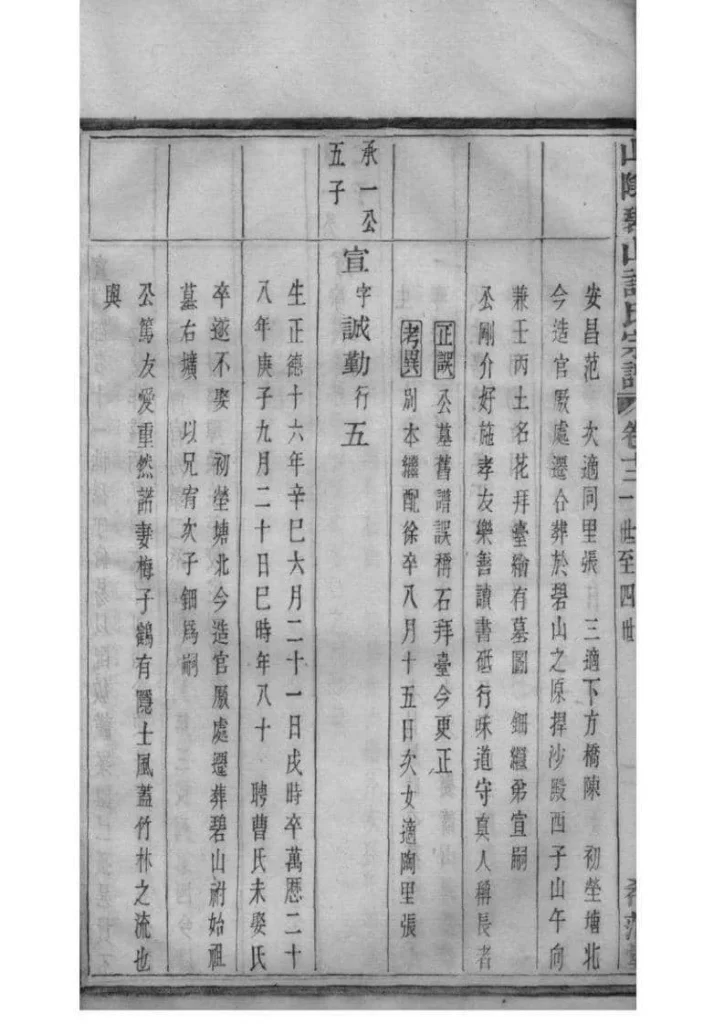 山陰碧山許氏宗譜 卷十三 一世至四世
安昌范 次適同里張 三適下方橋陳 初塋塘北
今造官厫處遷合葬於碧山之原捍沙殿西子山午向
兼壬丙土名花拜臺繪有墓圖 鈿繼弟宣嗣
公剛介好施孝友樂善讀書砥行味道守真人稱長者
正誤 公墓舊譜誤稱石拜臺今更正
考異 別本繼配徐卒八月十五日次女適陶里張
承一公
五子
宣字誠勤行五
生正德十六年辛巳六月二十一日戌時卒萬歷二十
八年庚子九月二十日巳時年八十 聘曹氏未娶氏
卒遂不娶 初塋塘北今造官厫處遷葬碧山祔始祖
墓右壙 以兄宥次子鈿為嗣
公篤友愛重然諾妻梅子鶴有隱士風蓋竹林之流也
與